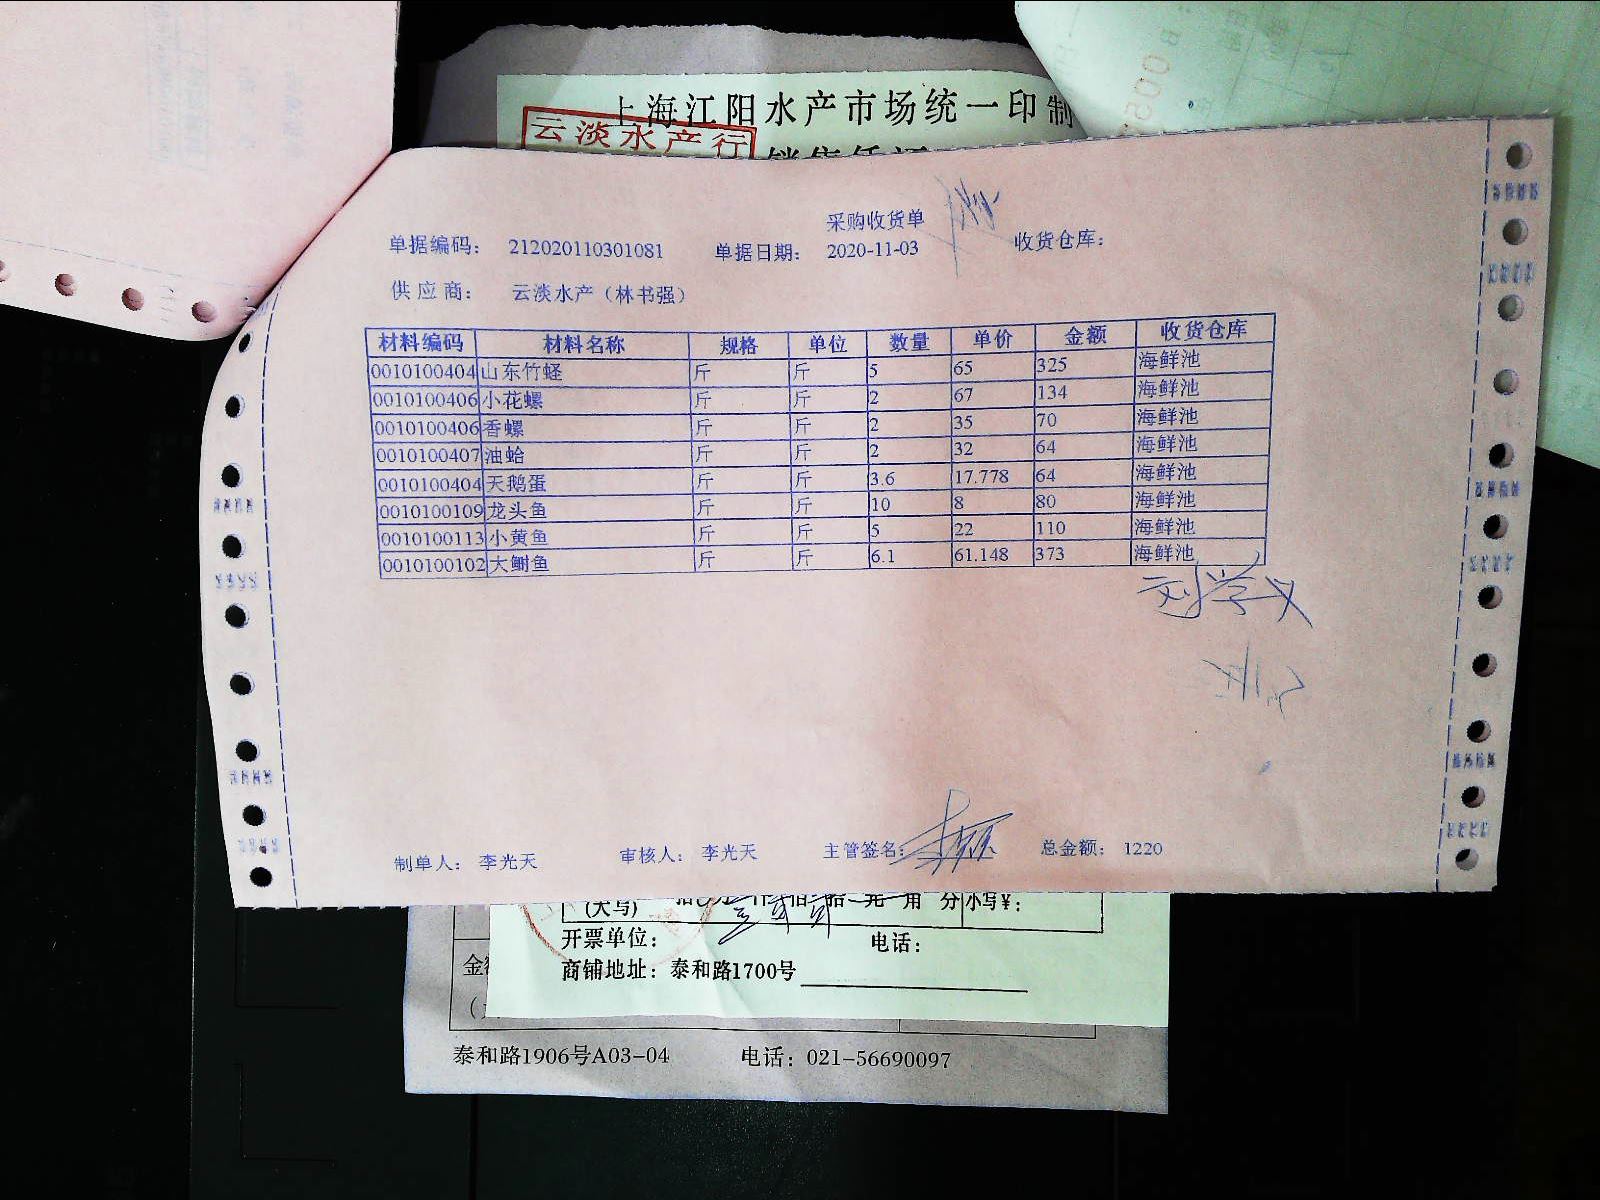 上海江阳水产市场统一印制
云淡水产行
采购收货单
单据编码： 212020110301081 单据日期： 2020-11-03 收货仓库：
供应商： 云淡水产（林书强）
材料编码 材料名称 规格 单位 数量 单价 金额 收货仓库
0010100404 山东竹蛏 斤 斤 5 65 325 海鲜池
0010100406 小花螺 斤 斤 2 67 134 海鲜池
0010100406 香螺 斤 斤 2 35 70 海鲜池
0010100407 油蛤 斤 斤 2 32 64 海鲜池
0010100404 天鹅蛋 斤 斤 3.6 17.778 64 海鲜池
0010100109 龙头鱼 斤 斤 10 8 80 海鲜池
0010100113 小黄鱼 斤 斤 5 22 110 海鲜池
0010100102 大鲥鱼 斤 斤 6.1 61.148 373 海鲜池
刘学义
制单人： 李光天 审核人： 李光天 主管签名： 总金额： 1220
(大写) 元 角 分 小写¥：
开票单位： 电话：
商铺地址：泰和路1700号
泰和路1906号A03-04 电话：021-56690097